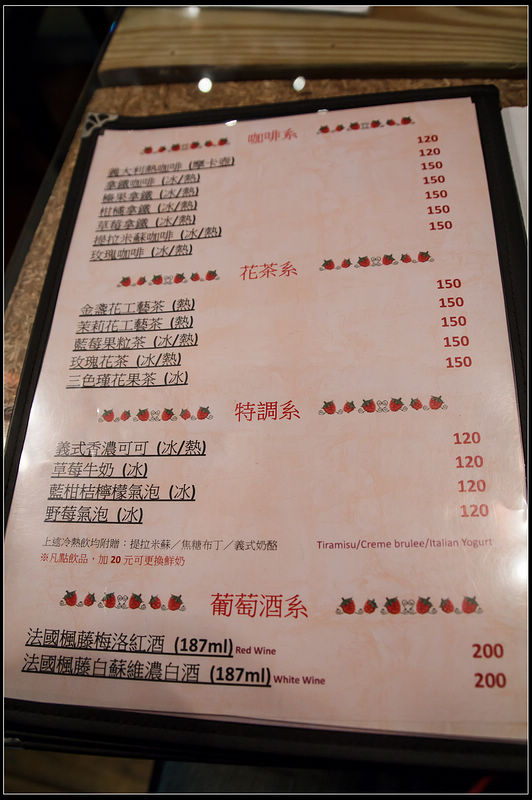 咖啡系
義大利熱咖啡 (摩卡壺) 120
拿鐵咖啡 (冰/熱) 120
榛果拿鐵 (冰/熱) 150
柑橘拿鐵 (冰/熱) 150
草莓拿鐵 (冰/熱) 150
提拉米蘇咖啡 (冰/熱) 150
玫瑰咖啡 (冰/熱) 150
花茶系
金盞花工藝茶 (熱) 150
茉莉花工藝茶 (熱) 150
藍莓果粒茶 (冰/熱) 150
玫瑰花茶 (冰/熱) 150
三色瑾花果茶 (冰) 150
特調系
義式香濃可可 (冰/熱) 120
草莓牛奶 (冰) 120
藍柑桔檸檬氣泡 (冰) 120
野莓氣泡 (冰) 120
上述冷熱飲均附贈：提拉米蘇／焦糖布丁／義式奶酪 Tiramisu/Creme brulee/Italian Yogurt
※凡點飲品，加 20 元可更換鮮奶
葡萄酒系
法國楓藤梅洛紅酒 (187ml) Red Wine 200
法國楓藤白蘇維濃白酒 (187ml) White Wine 200